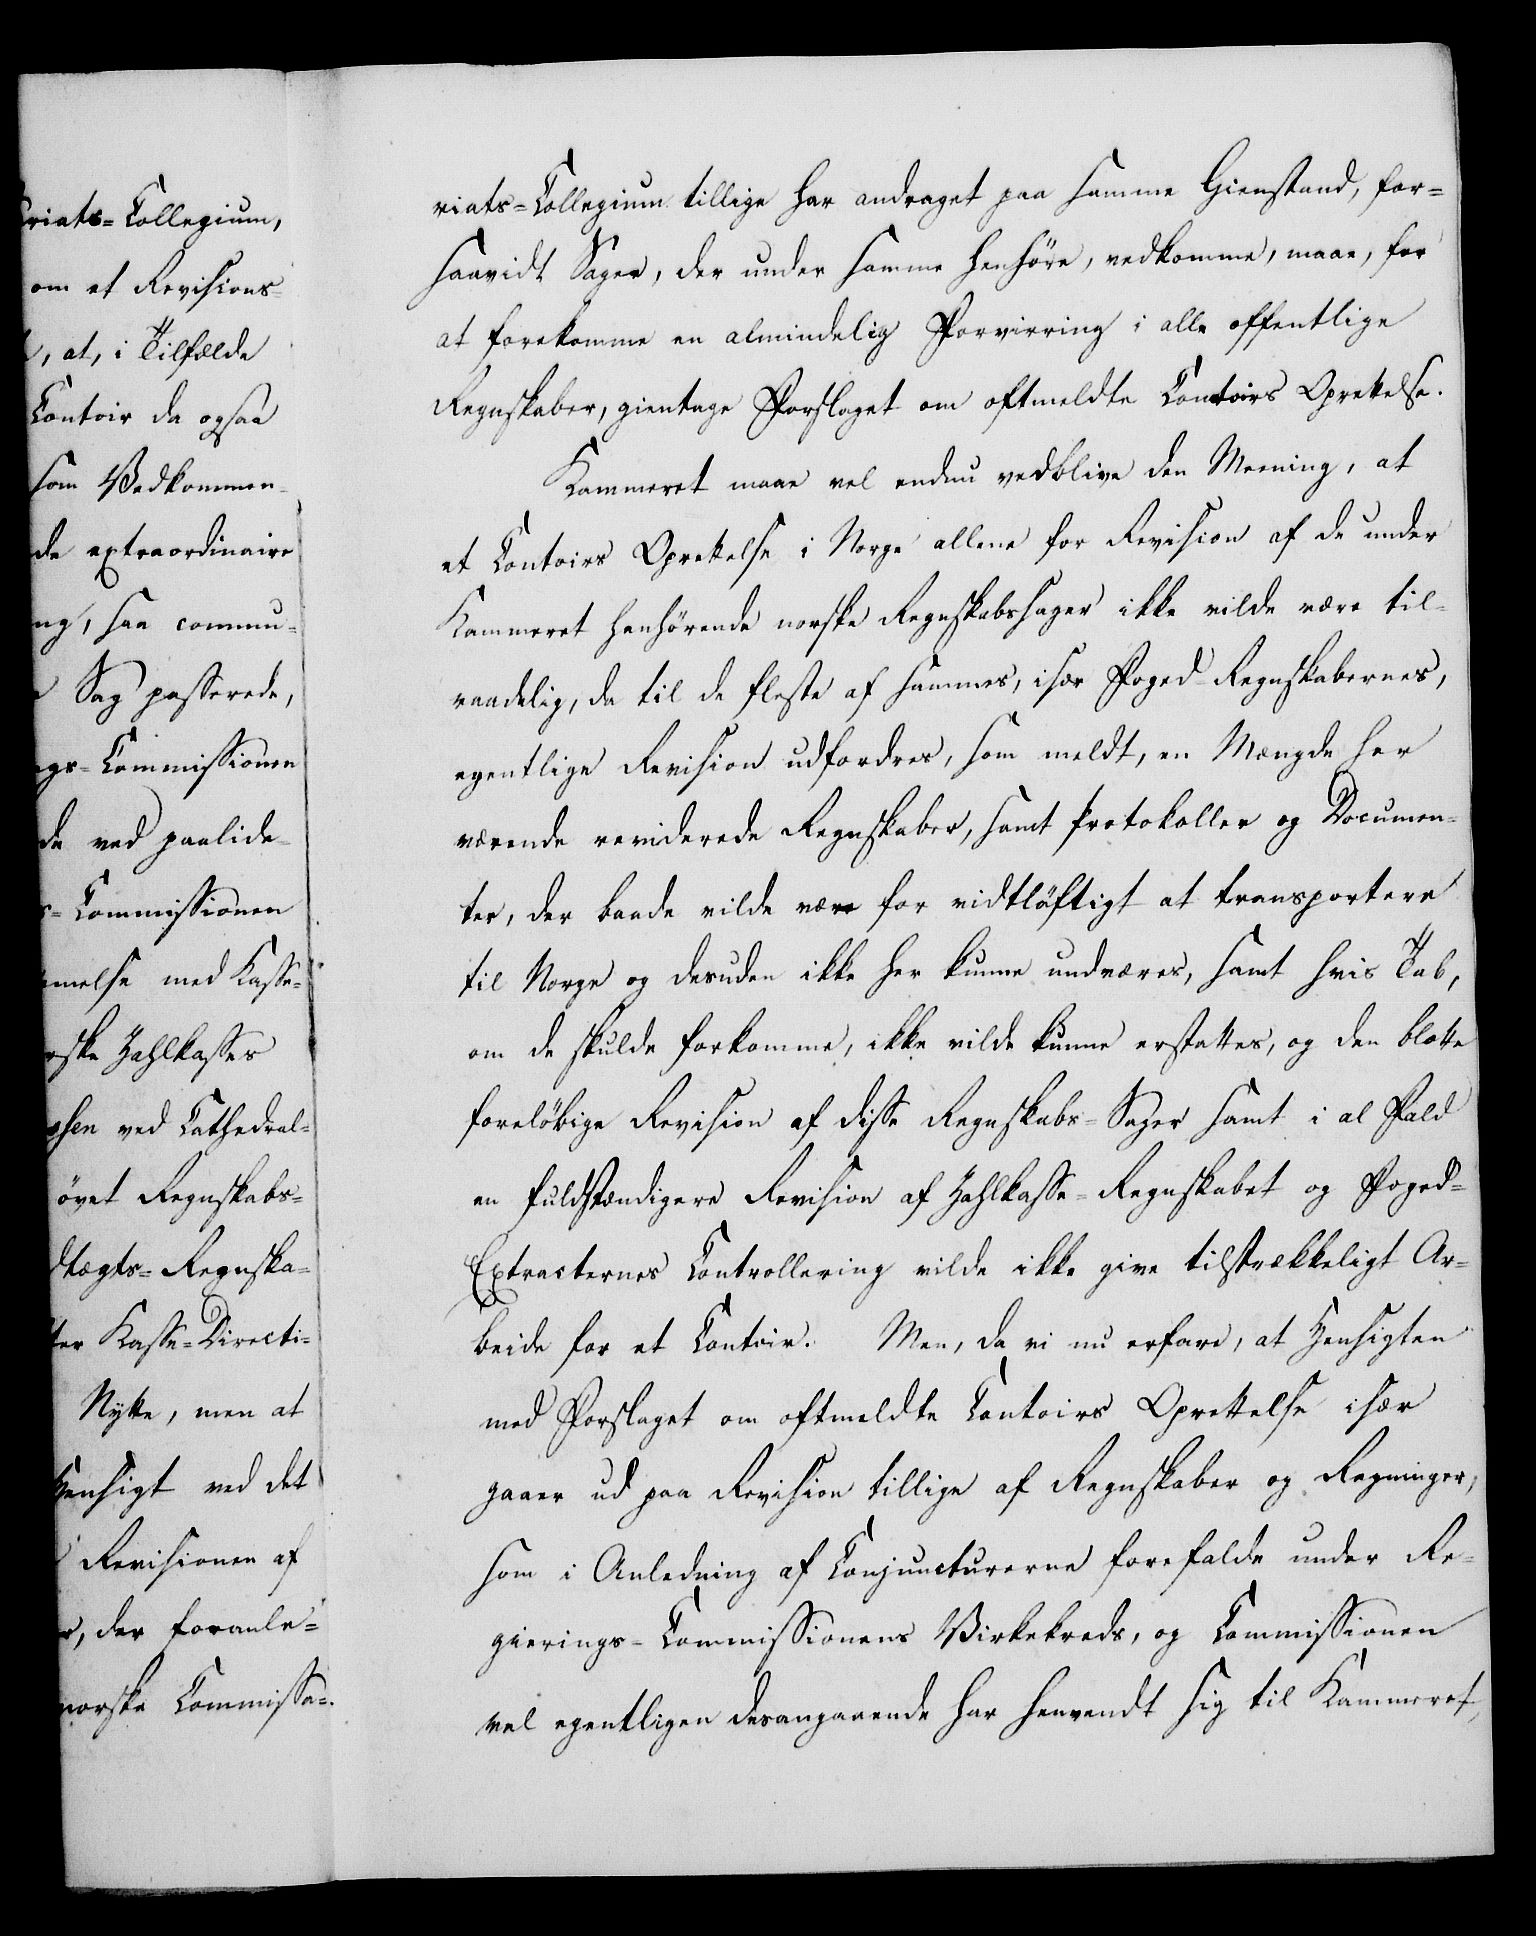 riats-Collegium,
om et Revisions-
, at, i Tilfælde
Contoir da ogsaa
som Vedkommen-
de extraordinaire
ng, saa commu-
Sag passerede,
ngs-Commissionen
de ved paalide-
s-Commissionen
melse med Kasse-
rske Zahlkasses
ved Cathedral-
övet Regnskabs-
dtægts-Regnska-
ter Kasse-Directi-
Nytte, men at
Hensigt ved det
Revisionen af
r, der foranle-
norske Commissa-
riats-Collegium tillige har andraget paa samme Gienstand, for-
saavidt Sager, der under samme henhöre, vedkomme, maae, for
at forekomme en almindelig Forvirring i alle offentlige
Regnskaber, gientage Forslaget om oftmeldte Contoirs Oprettelse.
Kammeret maae vel endnu vedblive den Meening, at
et Contoirs Oprettelse i Norge allene for Revision af de under
Kammeret henhörende norske Regnskabssager ikke vilde være til-
raadelig, da til de fleste af sammes, især Foged-Regnskabernes,
egentlige Revision udfordres, som meldt, en Mængde her
værende reviderede Regnskaber, samt Protokoller og Documen-
ter, der baade vilde være for vidtlöftigt at transportere
til Norge og desuden ikke her kunne undværes, samt hvis Tab,
om de skulde forkomme, ikke vilde kunne erstattes, og den blotte
forelöbige Revision af disse Regnskabs-Sager samt i al Fald
en fuldstændigere Revision af Zahlkasse-Regnskabet og Foged-
Extracternes Controllering vilde ikke give tilstrækkeligt Ar-
beide for et Contoir. Men, da vi nu erfare, at Hensigten
med Forslaget om oftmeldte Contoirs Oprettelse især
gaaer ud paa Revision tillige af Regnskaber og Regninger,
som i Anledning af Conjuncturerne forefalde under Re-
gierings-Commissionens Virkekreds, og Commissionen
vel egentligen desangaaende har henvendt sig til Kammeret,